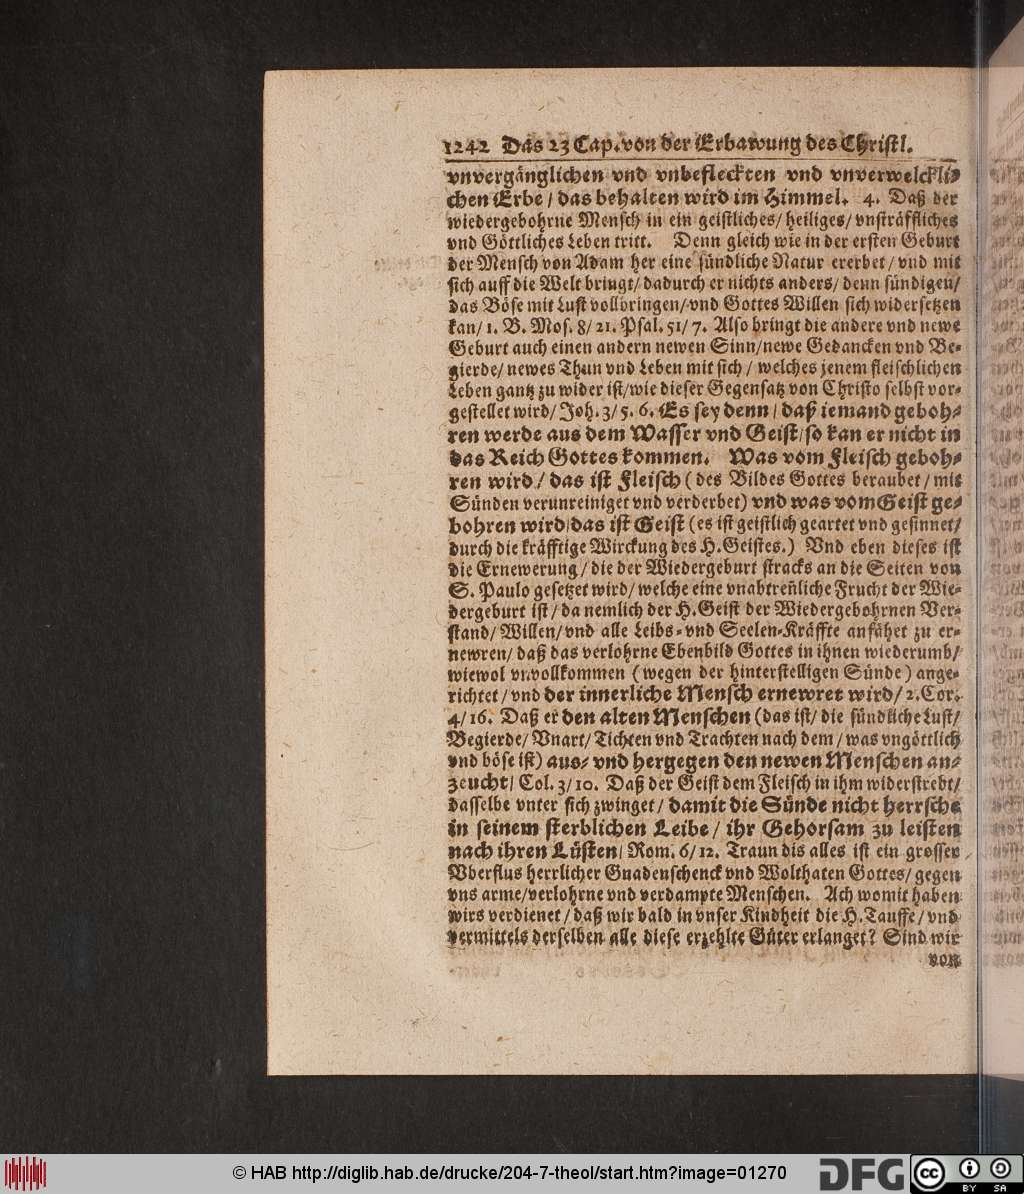 1242 Das 23 Cap. von der Erbawung des Christl.
vnvergänglichen vnd vnbefleckten vnd vnverwelckli-
chen Erbe / das behalten wird im Himmel. 4. Daß der
wiedergebohrne Mensch in ein geistliches / heiliges / vnsträffliches
vnd Göttliches Leben tritt. Denn gleich wie in der ersten Geburt
der Mensch von Adam her eine sündliche Natur ererbet / vnd mit
sich auff die Welt bringt / dadurch er nichts anders / denn sündigen /
das Böse mit Lust vollbringen / vnd Gottes Willen sich widersetzen
kan / 1. B. Mos. 8 / 21. Psal. 51 / 7. Also bringt die andere vnd newe
Geburt auch einen andern newen Sinn / newe Gedancken vnd Be-
gierde / newes Thun vnd Leben mit sich / welches jenem fleischlichen
Leben gantz zu wider ist / wie dieser Gegensatz von Christo selbst vor-
gestellet wird / Joh. 3 / 5. 6. Es sey denn / daß iemand geboh-
ren werde aus dem Wasser vnd Geist / so kan er nicht in
das Reich Gottes kommen. Was vom Fleisch geboh-
ren wird / das ist Fleisch (des Bildes Gottes beraubet / mit
Sünden verunreiniget vnd verderbet) vnd was vom Geist ge-
bohren wird / das ist Geist (es ist geistlich geartet vnd gesinnet /
durch die kräfftige Wirckung des H. Geistes.) Vnd eben dieses ist
die Ernewerung / die der Wiedergeburt stracks an die Seiten von
S. Paulo gesetzet wird / welche eine vnabtreñliche Frucht der Wie-
dergeburt ist / da nemlich der H. Geist der Wiedergebohrnen Ver-
stand / Willen / vnd alle Leibs- vnd Seelen-Kräffte anfähet zu er-
newren / daß das verlohrne Ebenbild Gottes in ihnen wiederumb /
wiewol vnvollkommen (wegen der hinterstelligen Sünde) ange-
richtet / vnd der innerliche Mensch ernewret wird / 2. Cor.
4 / 16. Daß er den alten Menschen (das ist / die sündliche Lust /
Begierde / Vnart / Tichten vnd Trachten nach dem / was vngöttlich
vnd böse ist) aus- vnd hergegen den newen Menschen an-
zeucht / Col. 3 / 10. Daß der Geist dem Fleisch in ihm widerstrebt /
dasselbe vnter sich zwinget / damit die Sünde nicht herrsche
in seinem sterblichen Leibe / ihr Gehorsam zu leisten
nach ihren Lüsten / Rom. 6 / 12. Traun dis alles ist ein grosser
Vberflus herrlicher Gnadenschenck vnd Wolthaten Gottes / gegen
vns arme / verlohrne vnd verdampte Menschen. Ach womit haben
wirs verdienet / daß wir bald in vnser Kindheit die H. Tauffe / vnd
vermittels derselben alle diese erzehlte Güter erlanget? Sind wir
von
© HAB http://diglib.hab.de/drucke/204-7-theol/start.htm?image=01270
DFG
cc BY SA